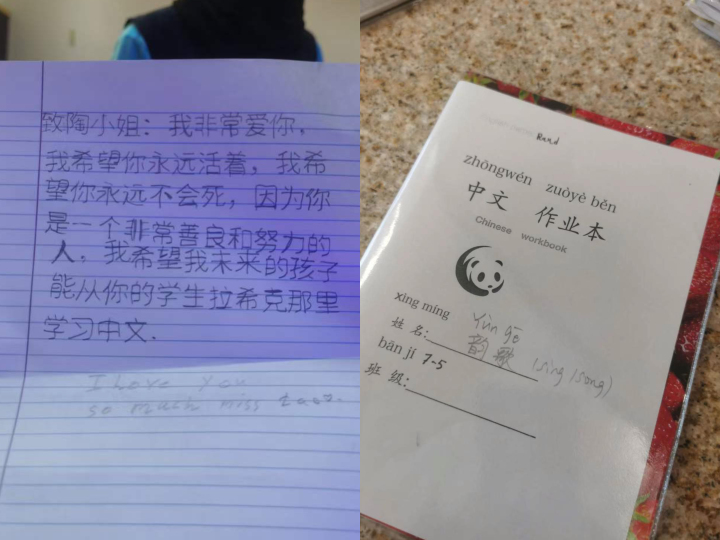 致陶小姐：我非常爱你，
我希望你永远活着，我希
望你永远不会死，因为你
是一个非常善良和努力的
人。我希望我未来的孩子
能从你的学生拉希克那里
学习中文.
I love you
so much miss
Raad
zhōngwén zuòyè běn
中文 作业本
Chinese workbook
xìng míng Yùn gē
姓 名: 韵歌 (sing/song)
bān jí 7-5
班 级: